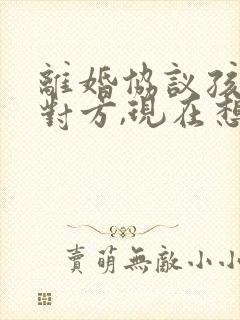 離婚協議孩
對方,現在想
賣萌無敵小小